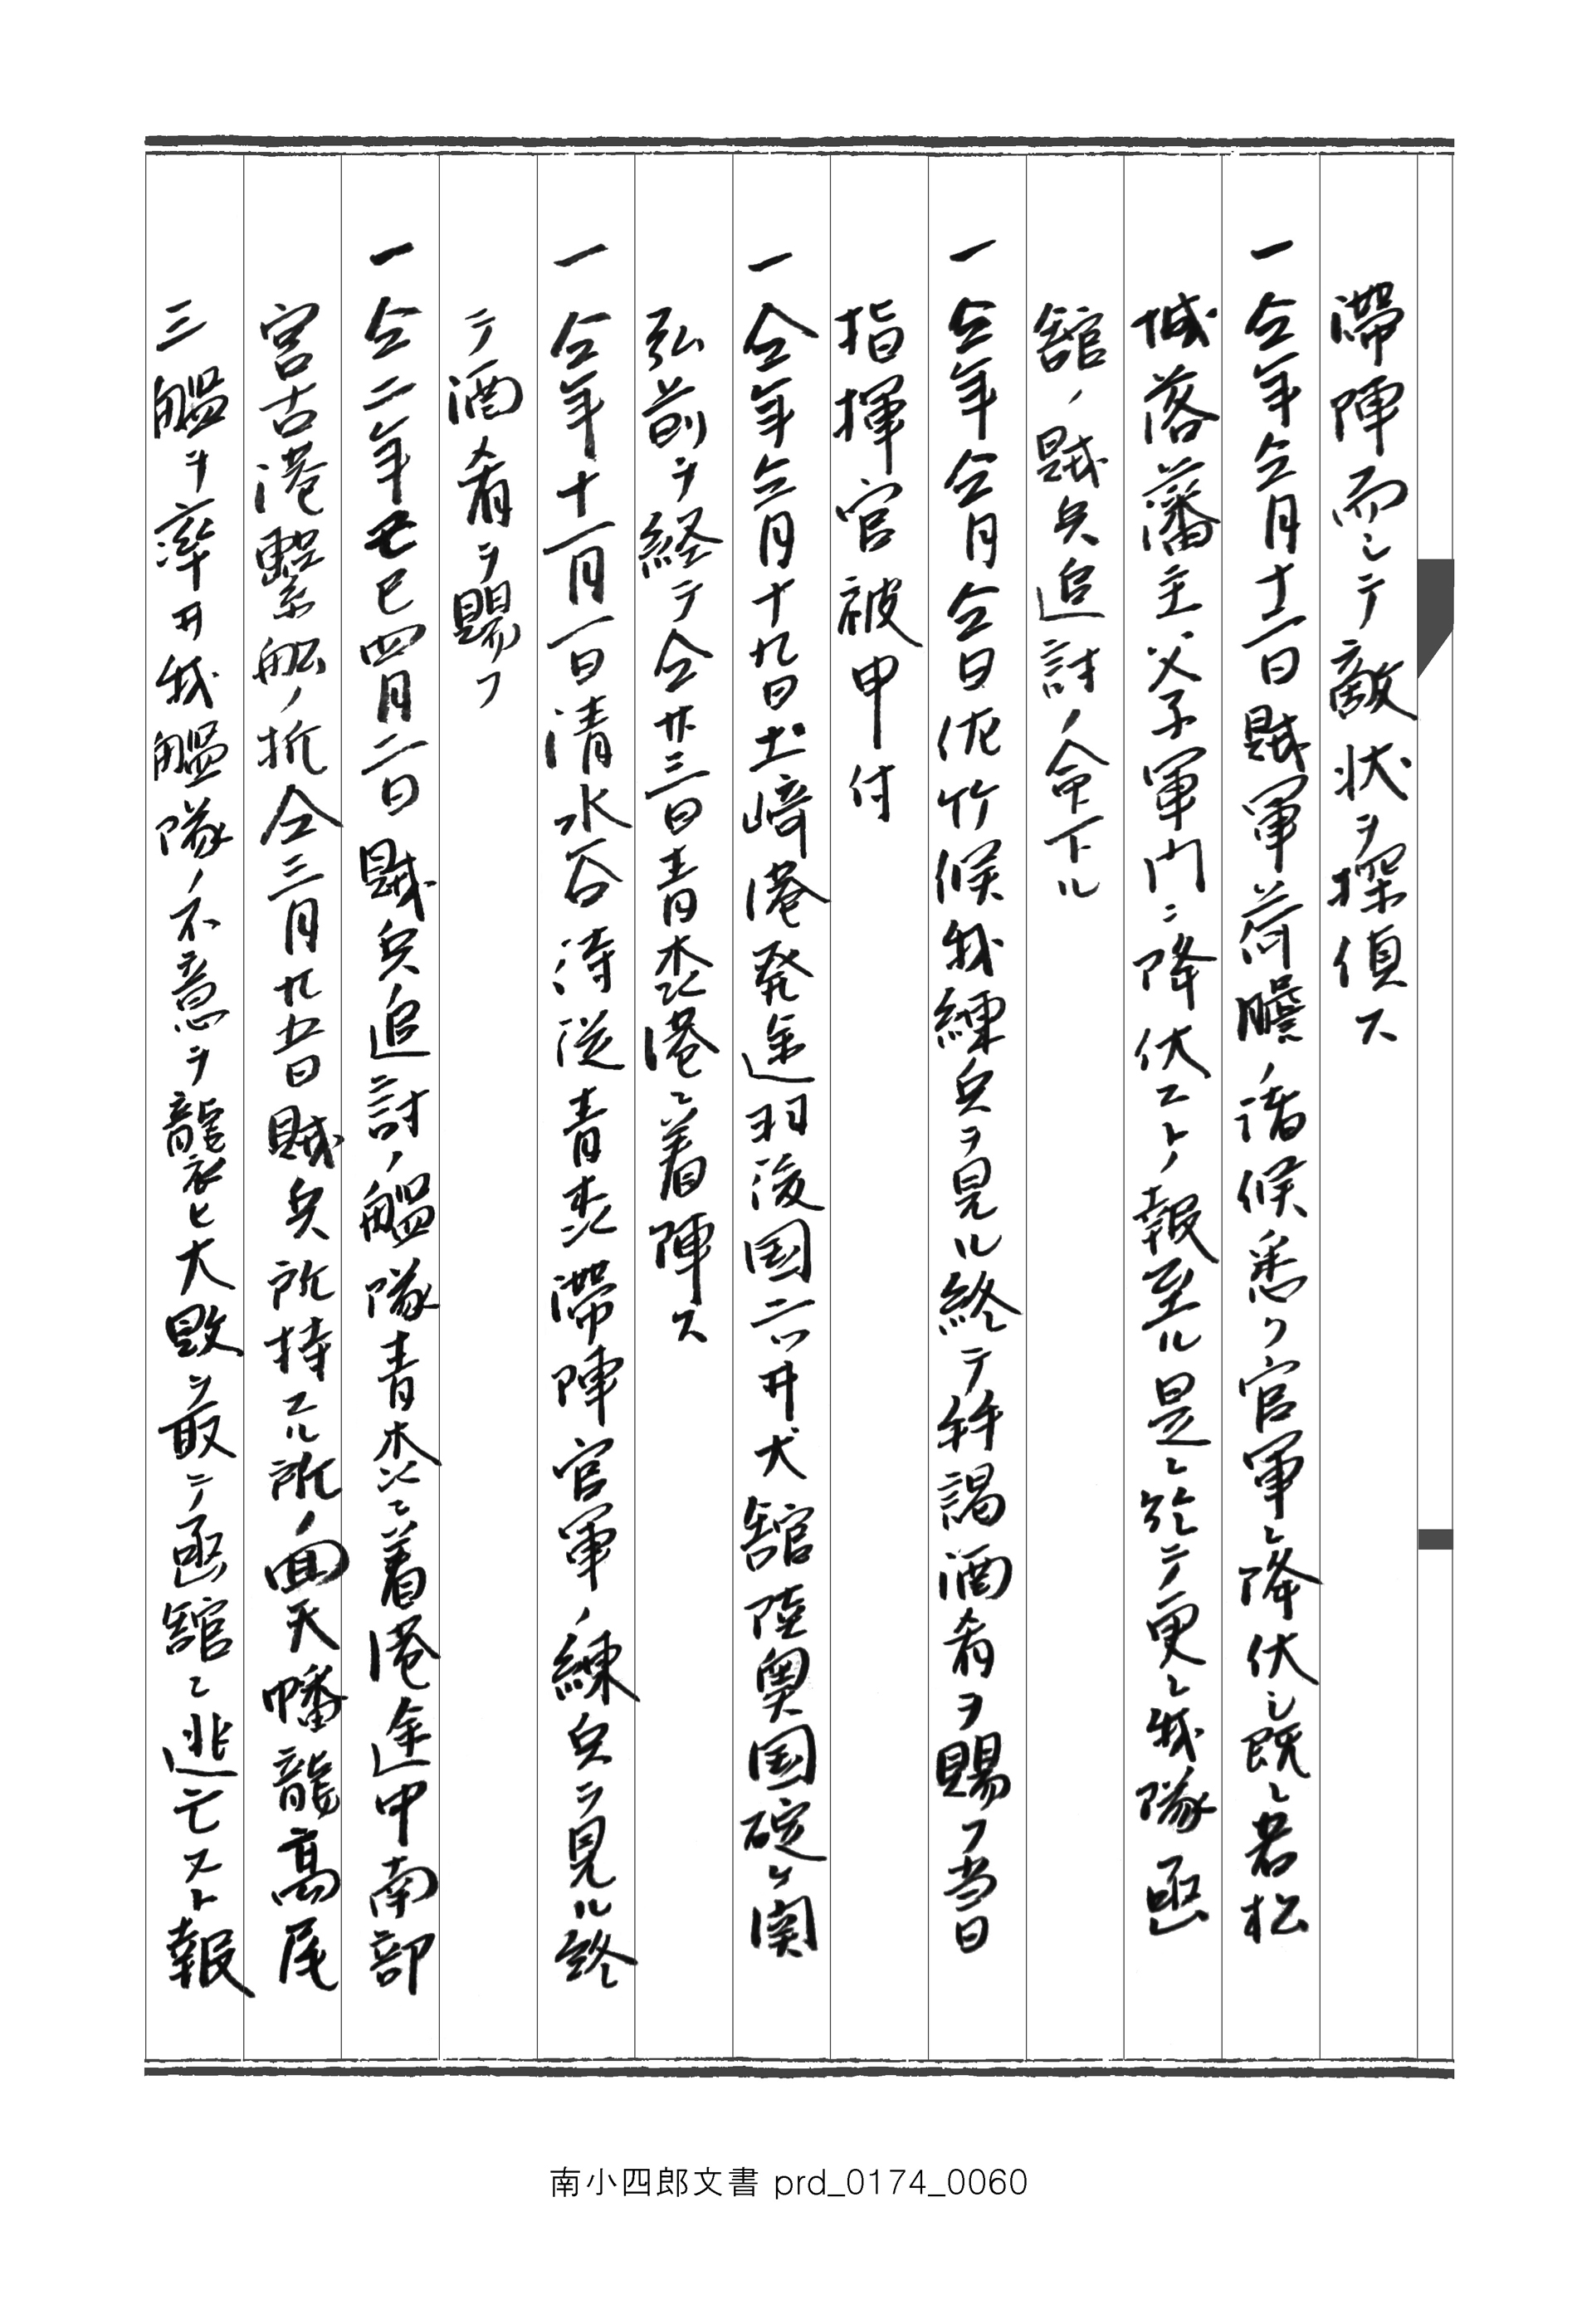 滞陣而シテ敵状ヲ探偵ス
一仝年仝月十一日賊軍荷膽ノ諸候悉ク官軍ニ降伏シ既ニ若松
城落藩主父子軍門ニ降伏エトノ報至ル是ニ於テ更ニ我隊函
舘ノ賊兵追討ノ命下ル
一仝年仝月仝日佐竹候我練兵ヲ見ル終テ拝謁酒肴ヲ賜フ当日
指揮官被申付
一仝年仝月十九日土崎港発途羽後国六井犬舘陸奥国碇ヶ関
弘前ヲ経テ仝廿三日青森港ニ着陣ス
一仝年十一月一日清水谷侍従青森滞陣官軍ノ練兵ヲ見ル終
テ酒肴ヲ賜フ
一仝二年己巳四月二日賊兵追討ノ艦隊青森ニ着港途中南部
宮古港繋船ノ折仝三月廿五日賊兵所持エル所ノ回天幡龍高尾
三艦ヲ率ヰ我艦隊ノ不意ヲ襲ヒ大敗シ敢テ函舘ニ逃亡ストノ報
南小四郎文書 prd_0174_0060